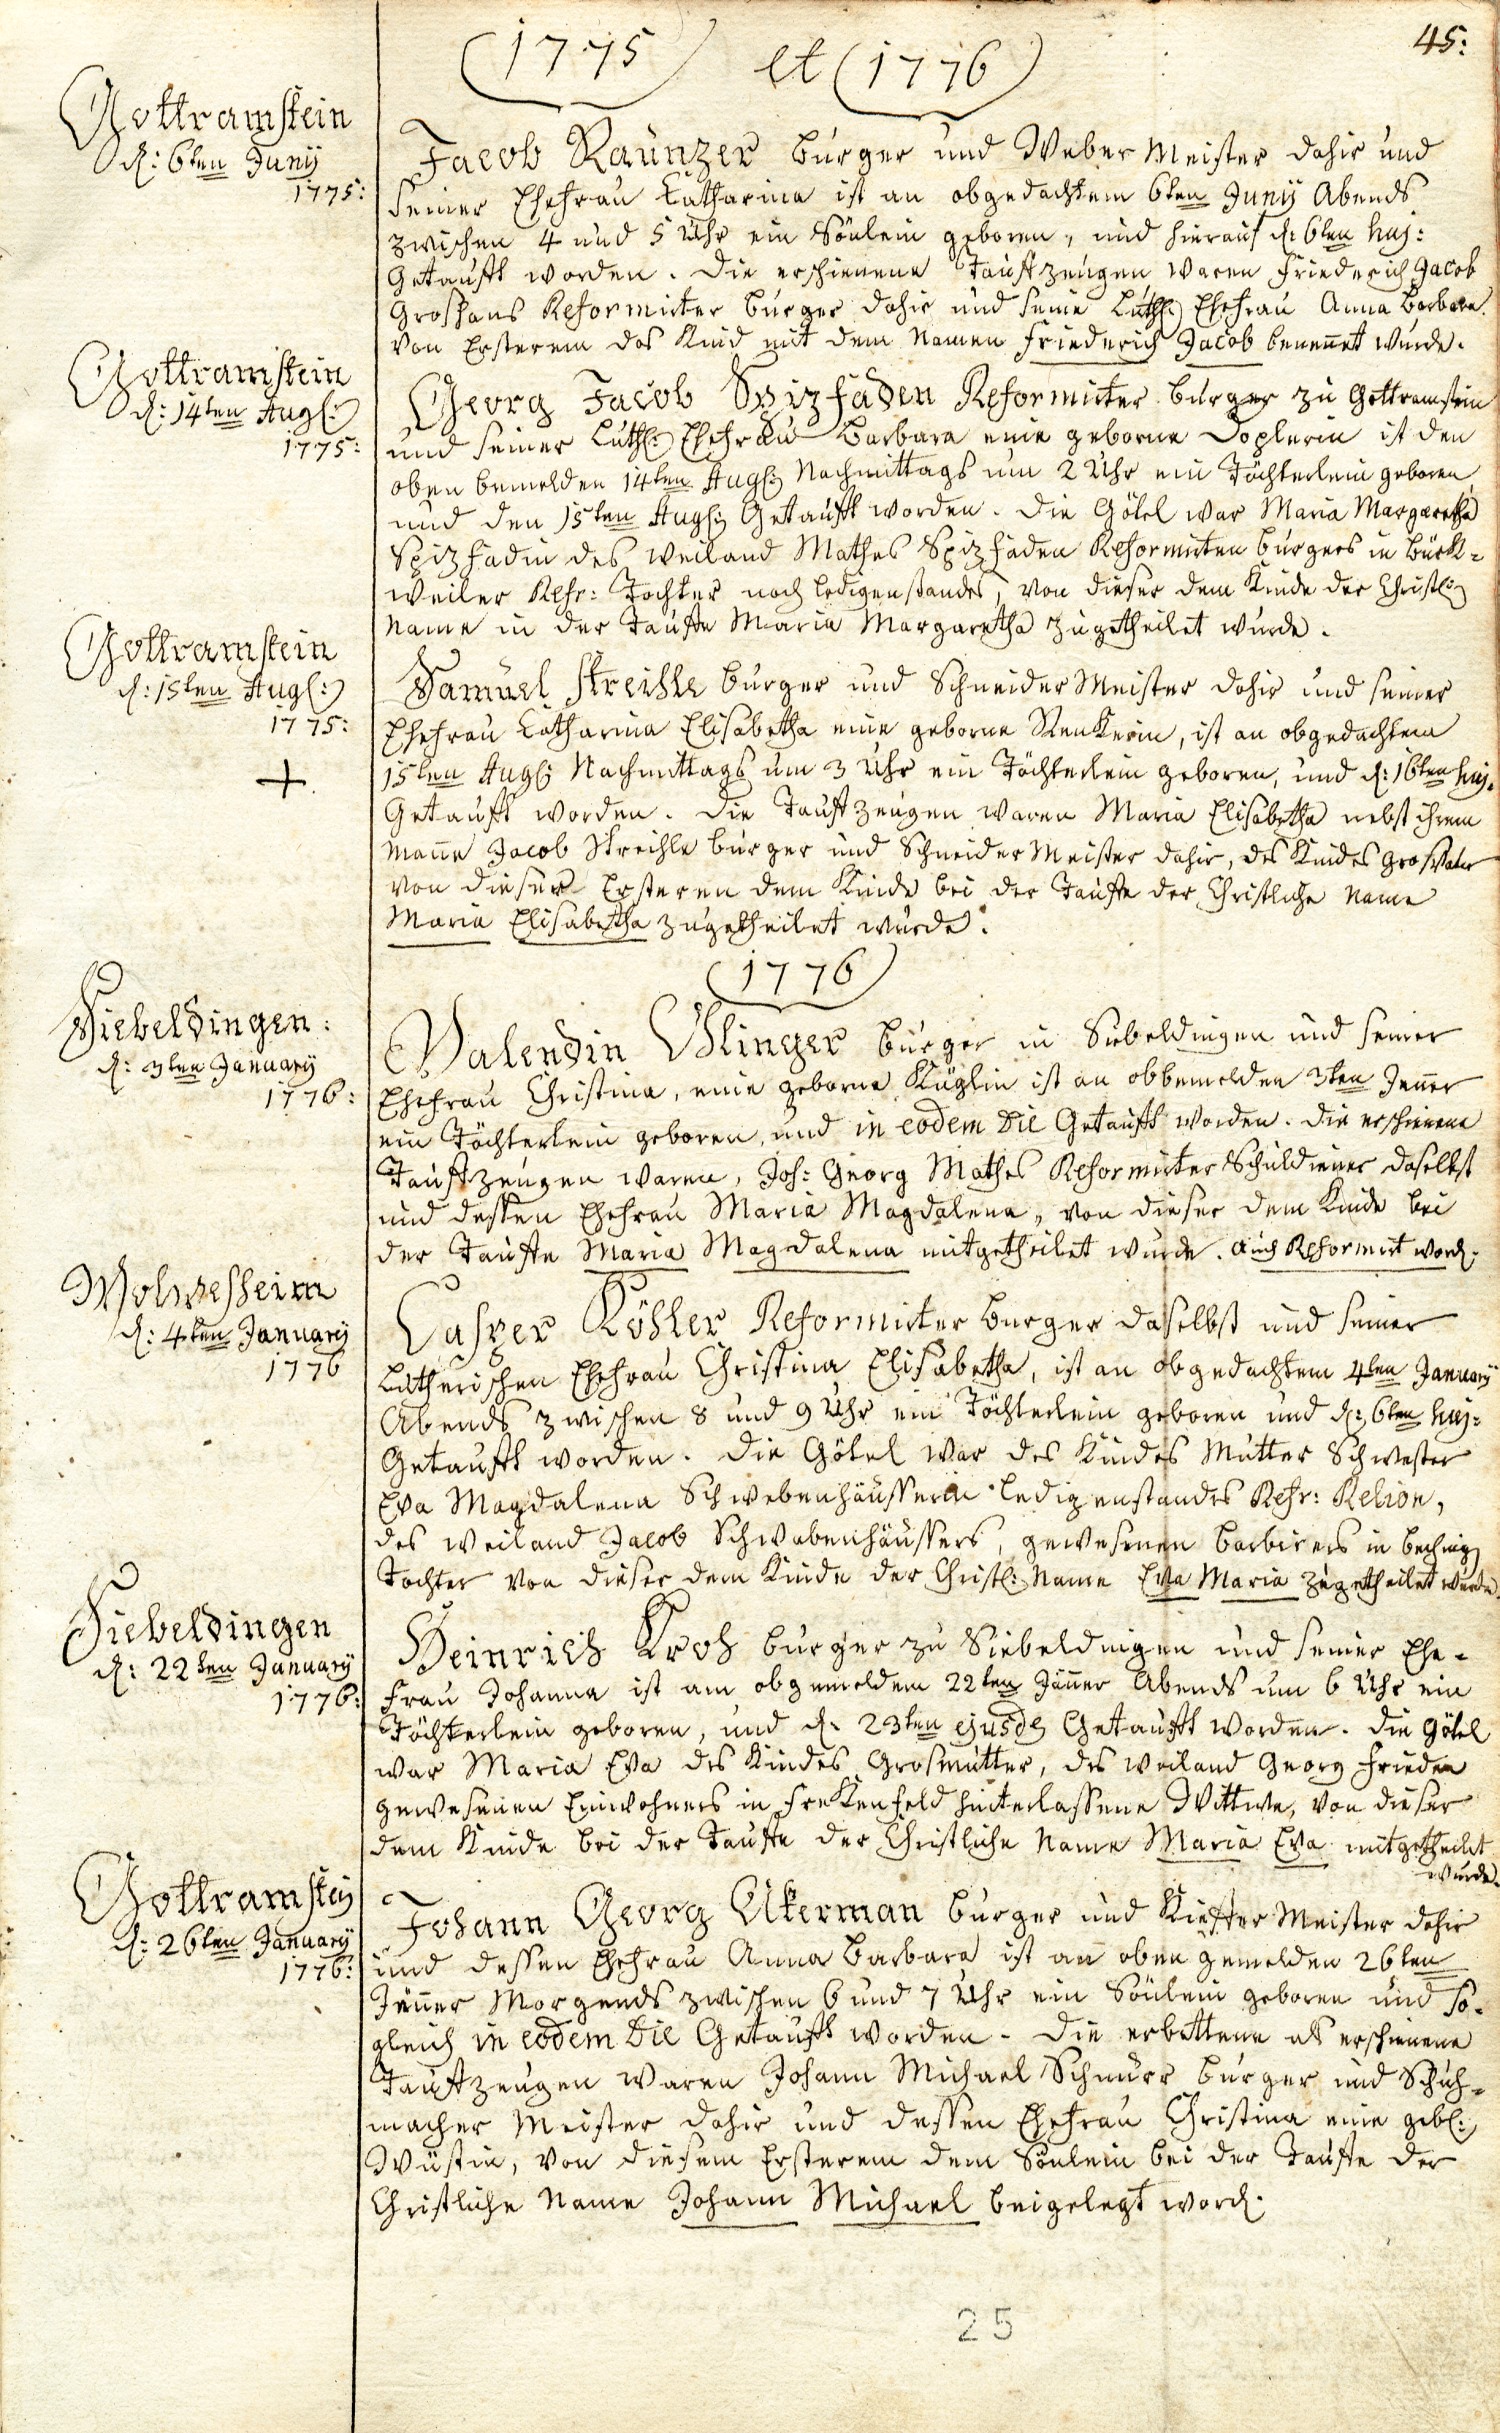 45:
1775 et 1776
Gottramstein
d: 6ten Juny
1775:
Jacob Raunzer burger und Weber Meister dahir und
seiner Ehefrau Catharina ist an obgedachtem 6ten Juny Abends
zwischen 4 und 5 Uhr ein Sönlein geboren, und hierauf d: 6ten huj:
Getaufft worden. Die erschienene Tauffzeugen waren Friederich Jacob
Groshans Reformirter burger dahir und seine Luth: Ehefrau Anna Barbara.
von Ersterem das Kind mit dem Namen Friederich Jacob benennet wurde.
Gottramstein
d: 14ten Aug:
1775:
Georg Jacob Spizfaden Reformirter burger zu Gottramstein
und seiner Luth: Ehefrau Barbara eine geborne Doplerin ist den
oben bemelden 14ten Aug: Nachmittags um 2 Uhr ein Töchterlein geboren
und den 15ten Aug: Getaufft worden. Die Götel war Maria Margaretha
Spizfadin des weiland Mathes Spizfaden Reformirten burgers in Bürk-
weiler Refr: Tochter noch ledigenstandes, von dieser dem Kinde der Christl:
Name in der Tauffe Maria Margaretha zugetheilet wurde.
Gottramstein
d: 15ten Aug:
1775:
+
Samuel Streihle burger und Schneider Meister dahir und seiner
Ehefrau Catharina Elisabetha eine geborne Renkerin, ist an obgedachtem
15ten Aug: Nachmittags um 3 Uhr ein Töchterlein geboren, und d: 16ten huj.
Getaufft worden. Die Tauffzeugen waren Maria Elisabetha nebst ihrem
Manne Jacob Streihle burger und Schneider Meister dahir, des Kindes Grosvater
von dieser Ersteren dem Kinde bei der Tauffe der Christliche Name
Maria Elisabetha zugetheilet wurde.
1776
Siebeldingen:
d: 3ten January
1776:
Valendin Uhlinger burger in Siebeldingen und seiner
Ehefrau Christina, eine geborne Küglin ist an obbemelden 3ten Jenner
ein Töchterlein geboren, und in eodem Die Getaufft worden. Die erschienene
Tauffzeugen waren, Joh: Georg Mathes Reformirter Schuldiener daselbst
und dessen Ehefrau Maria Magdalena, von dieser dem Kinde bei
der Tauffe Maria Magdalena mitgetheilet wurde. Auch Reformirt word:
Wolmesheim
d: 4ten January
1776
Casper Köhler Reformirter burger daselbst und seiner
Lutherischen Ehefrau Christina Elisabetha, ist an obgedachtem 4ten January
Abends zwischen 8 und 9 Uhr ein Töchterlein geboren und d: 6ten huj:
Getaufft worden. Die Götel war des Kindes Mutter Schwester
Eva Magdalena Schwebenhäusserin ledigenstandes Refr: Relion,
des weiland Jacob Schwabenhäussers, gewesenen barbirers in
Tochter von dieser dem Kinde der Christl: Name Eva Maria zugetheilet wurde.
Siebeldingen
d: 22ten January
1776:
Heinrich Kroh burger zu Siebeldingen und seiner Ehe-
frau Johanna ist am obgemeldem 22ten Jänner Abends um 6 Uhr ein
Töchterlein geboren, und d. 23ten ejusd: Getaufft worden. Die Götel
war Maria Eva des Kindes Grosmutter, des weiland Georg Frieden
gewesenen Einwohners in Frekenfeld hinterlassene Wittwe, von dieser
dem Kinde bei der Tauffe der Christliche Name Maria Eva mitgetheilet
wurde.
Gottramstein
d: 26ten January
1776:
Johann Georg Akerman burger und Kieffer Meister dahir
und dessen Ehefrau Anna Barbara ist an oben gemelden 26ten
Jänner Morgends zwischen 6 und 7 Uhr ein Sönlein geboren und so-
gleich in eodem Die Getaufft worden. Die erbettene als erschienene
Tauffzeugen waren Johann Michael Schnurr burger und Schuh-
macher Meister dahir und dessen Ehefrau Christina eine geb:
Wüstin, von diesem Ersterem dem Sönlein bei der Tauffe der
Christliche Name Johann Michael beigelegt word:
25